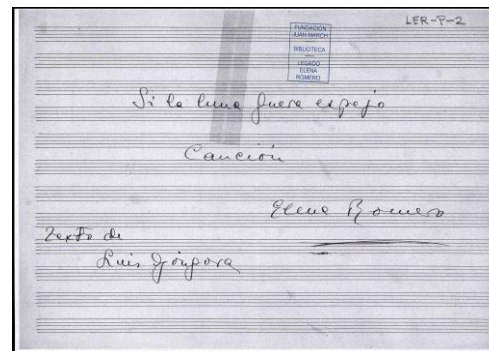 LER-P-2
FUNDACIÓN
JUAN MARCH
BIBLIOTECA
LEGADO
ELENA
ROMERO
Si la luna fuera espejo
Canción
Elena Romero
Texto de
Luis Góngora